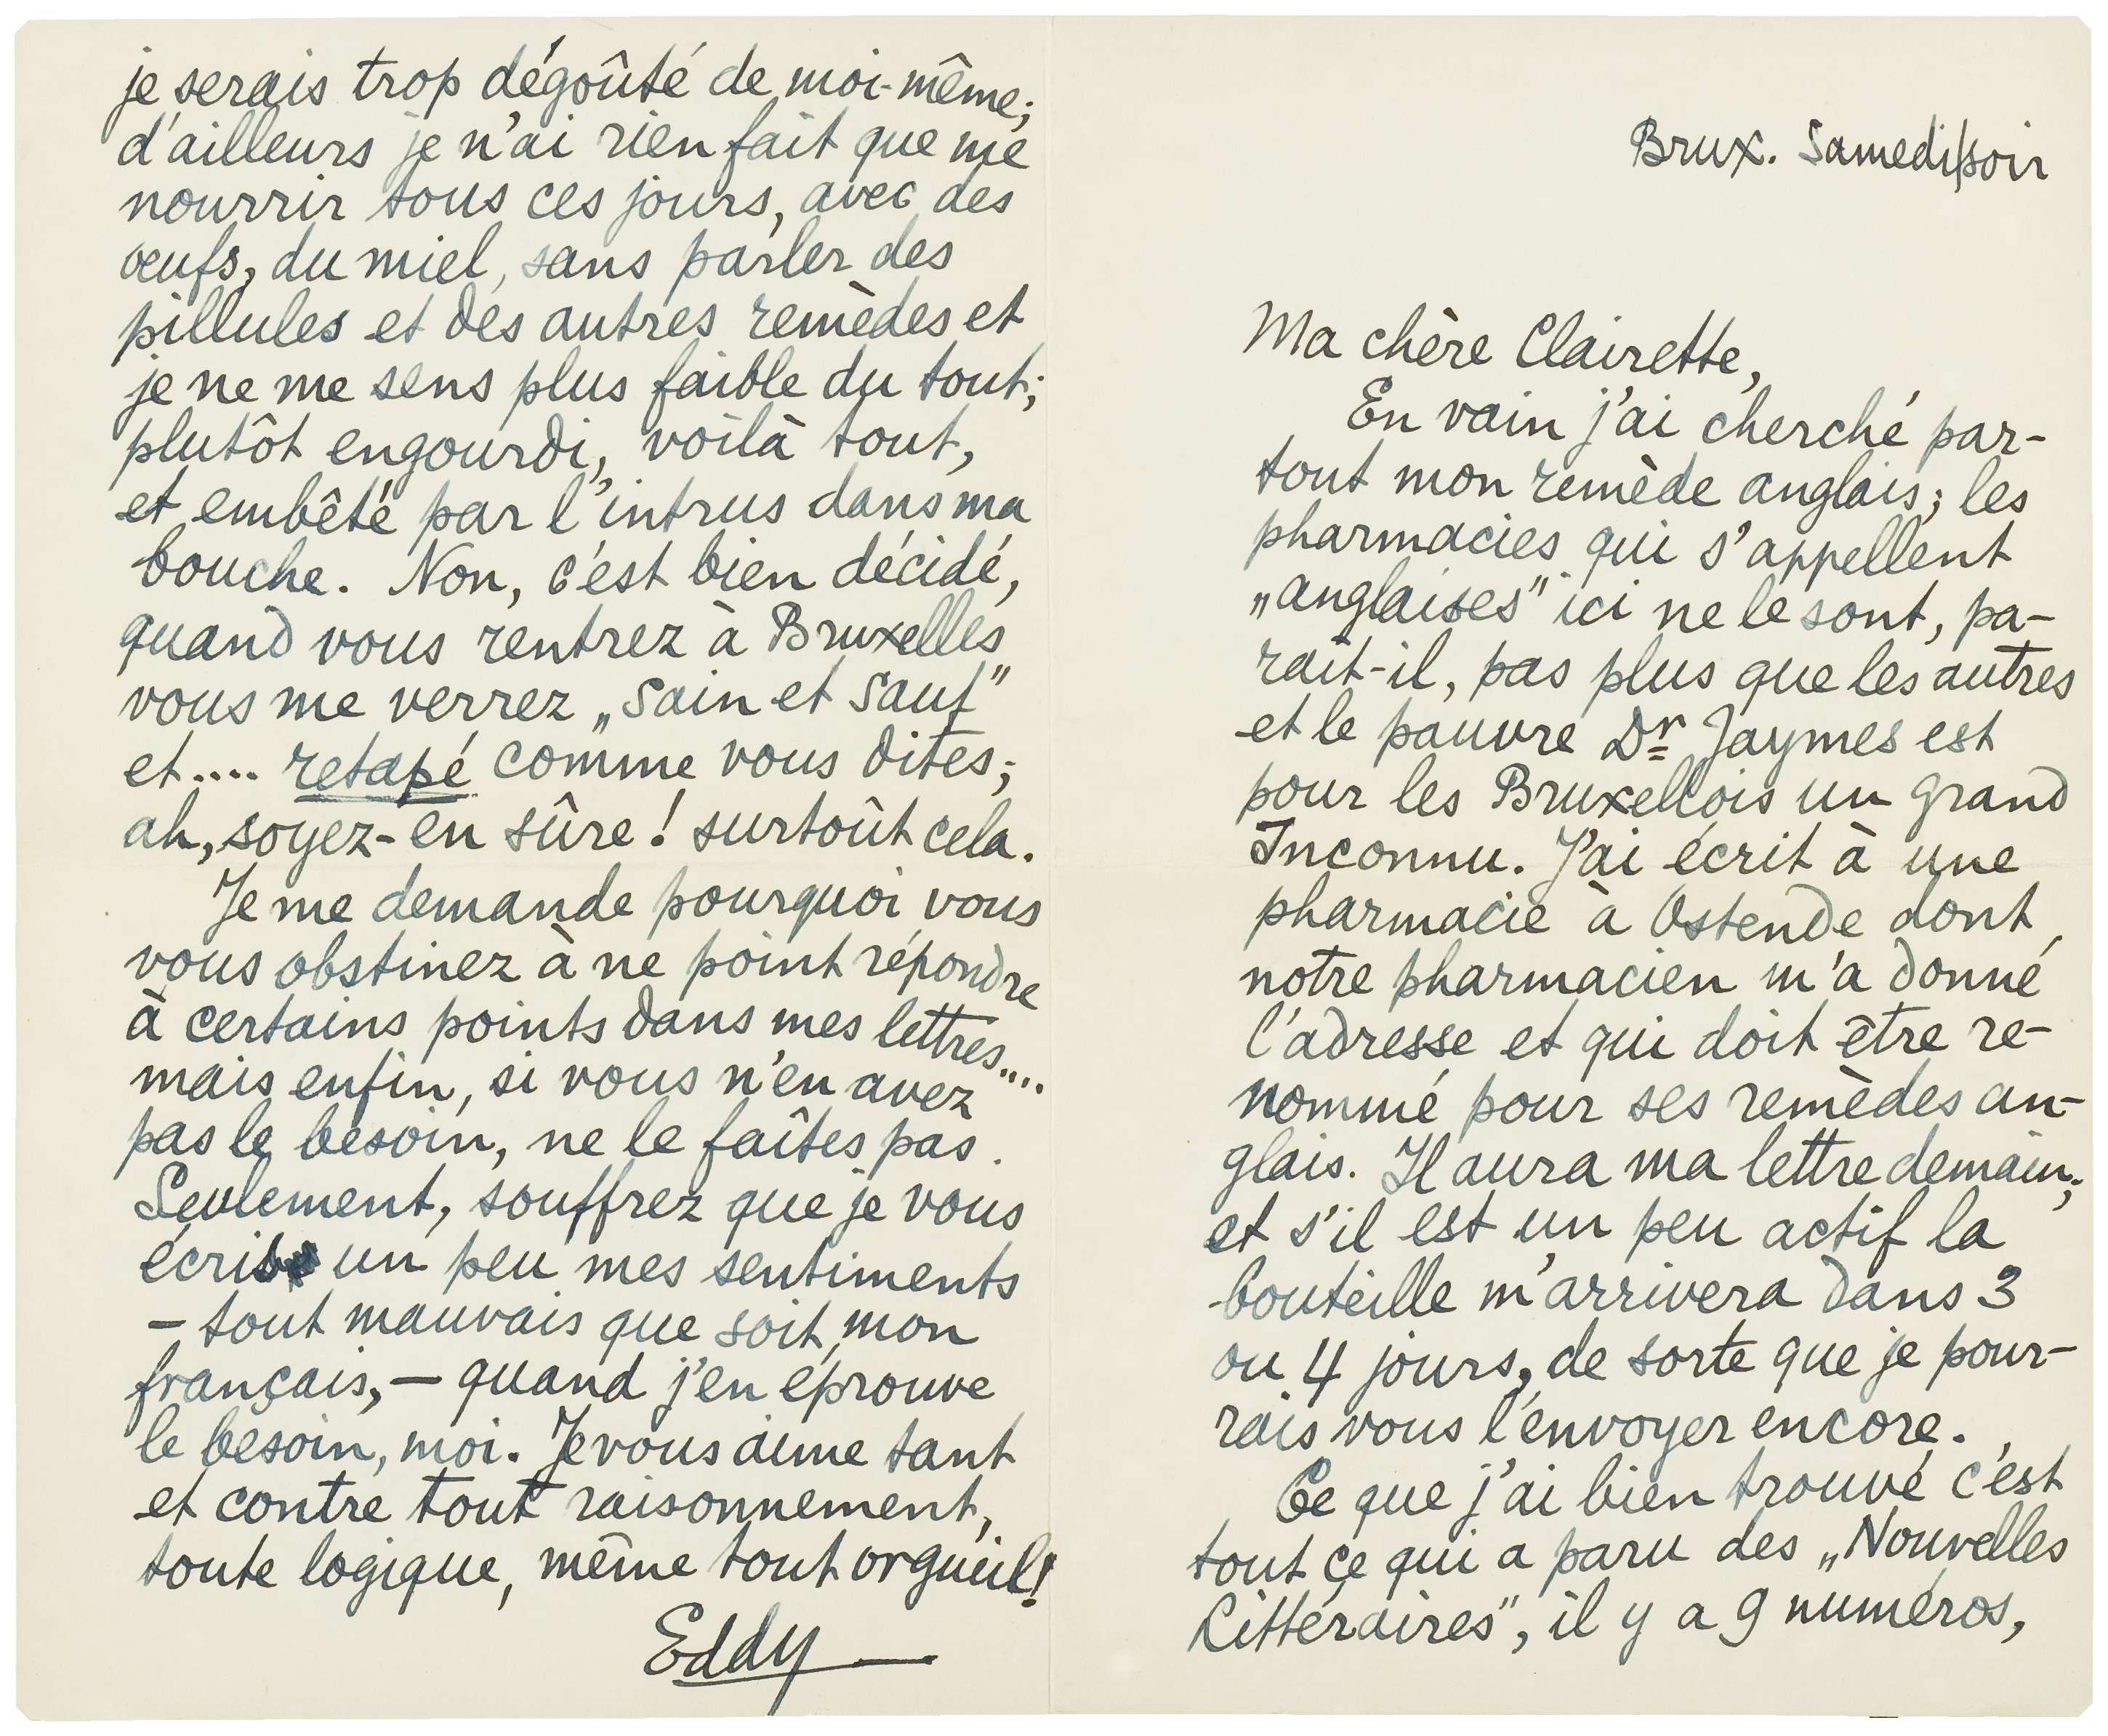 Brux. Samedi/soir
Ma chère Clairette,
En vain j'ai cherché par-
tout mon remède anglais; les
pharmacies qui s'appellent
„anglaises" ici ne le sont, pa-
raît-il, pas plus que les autres
et le pauvre Dr Jaymes est
pour les Bruxellois un grand
Inconnu. J'ai écrit à une
pharmacie à Ostende dont
notre pharmacien m'a donné
l'adresse et qui doit être re-
nommé pour ses remèdes an-
glais. Il aura ma lettre demain;
et s'il est un peu actif la
bouteille m'arrivera dans 3
ou 4 jours, de sorte que je pour-
rais vous l'envoyer encore.
Ce que j'ai bien trouvé c'est
tout ce qui a paru des „Nouvelles
Littéraires", il y a 9 numéros,
je serais trop dégoûté de moi-même;
d'ailleurs je n'ai rien fait que me
nourrir tous ces jours, avec des
œufs, du miel, sans parler des
pillules et des autres remèdes et
je ne me sens plus faible du tout;
plutôt engourdi, voilà tout,
et embêté par l'intrus dans ma
bouche. Non, c'est bien décidé,
quand vous rentrez à Bruxelles
vous me verrez „sain et sauf"
et.... retapé comme vous dites;
ah, soyez-en sûre! surtoût cela.
Je me demande pourquoi vous
vous obstinez à ne point répondre
à certains points dans mes lettres....
mais enfin, si vous n'en avez
pas le besoin, ne le faîtes pas.
Seulement, souffrez que je vous
écris un peu mes sentiments
– tout mauvais que soit mon
français, – quand j'en éprouve
le besoin, moi. Je vous aime tant
et contre tout raisonnement,
toute logique, même tout orgueil!
Eddy